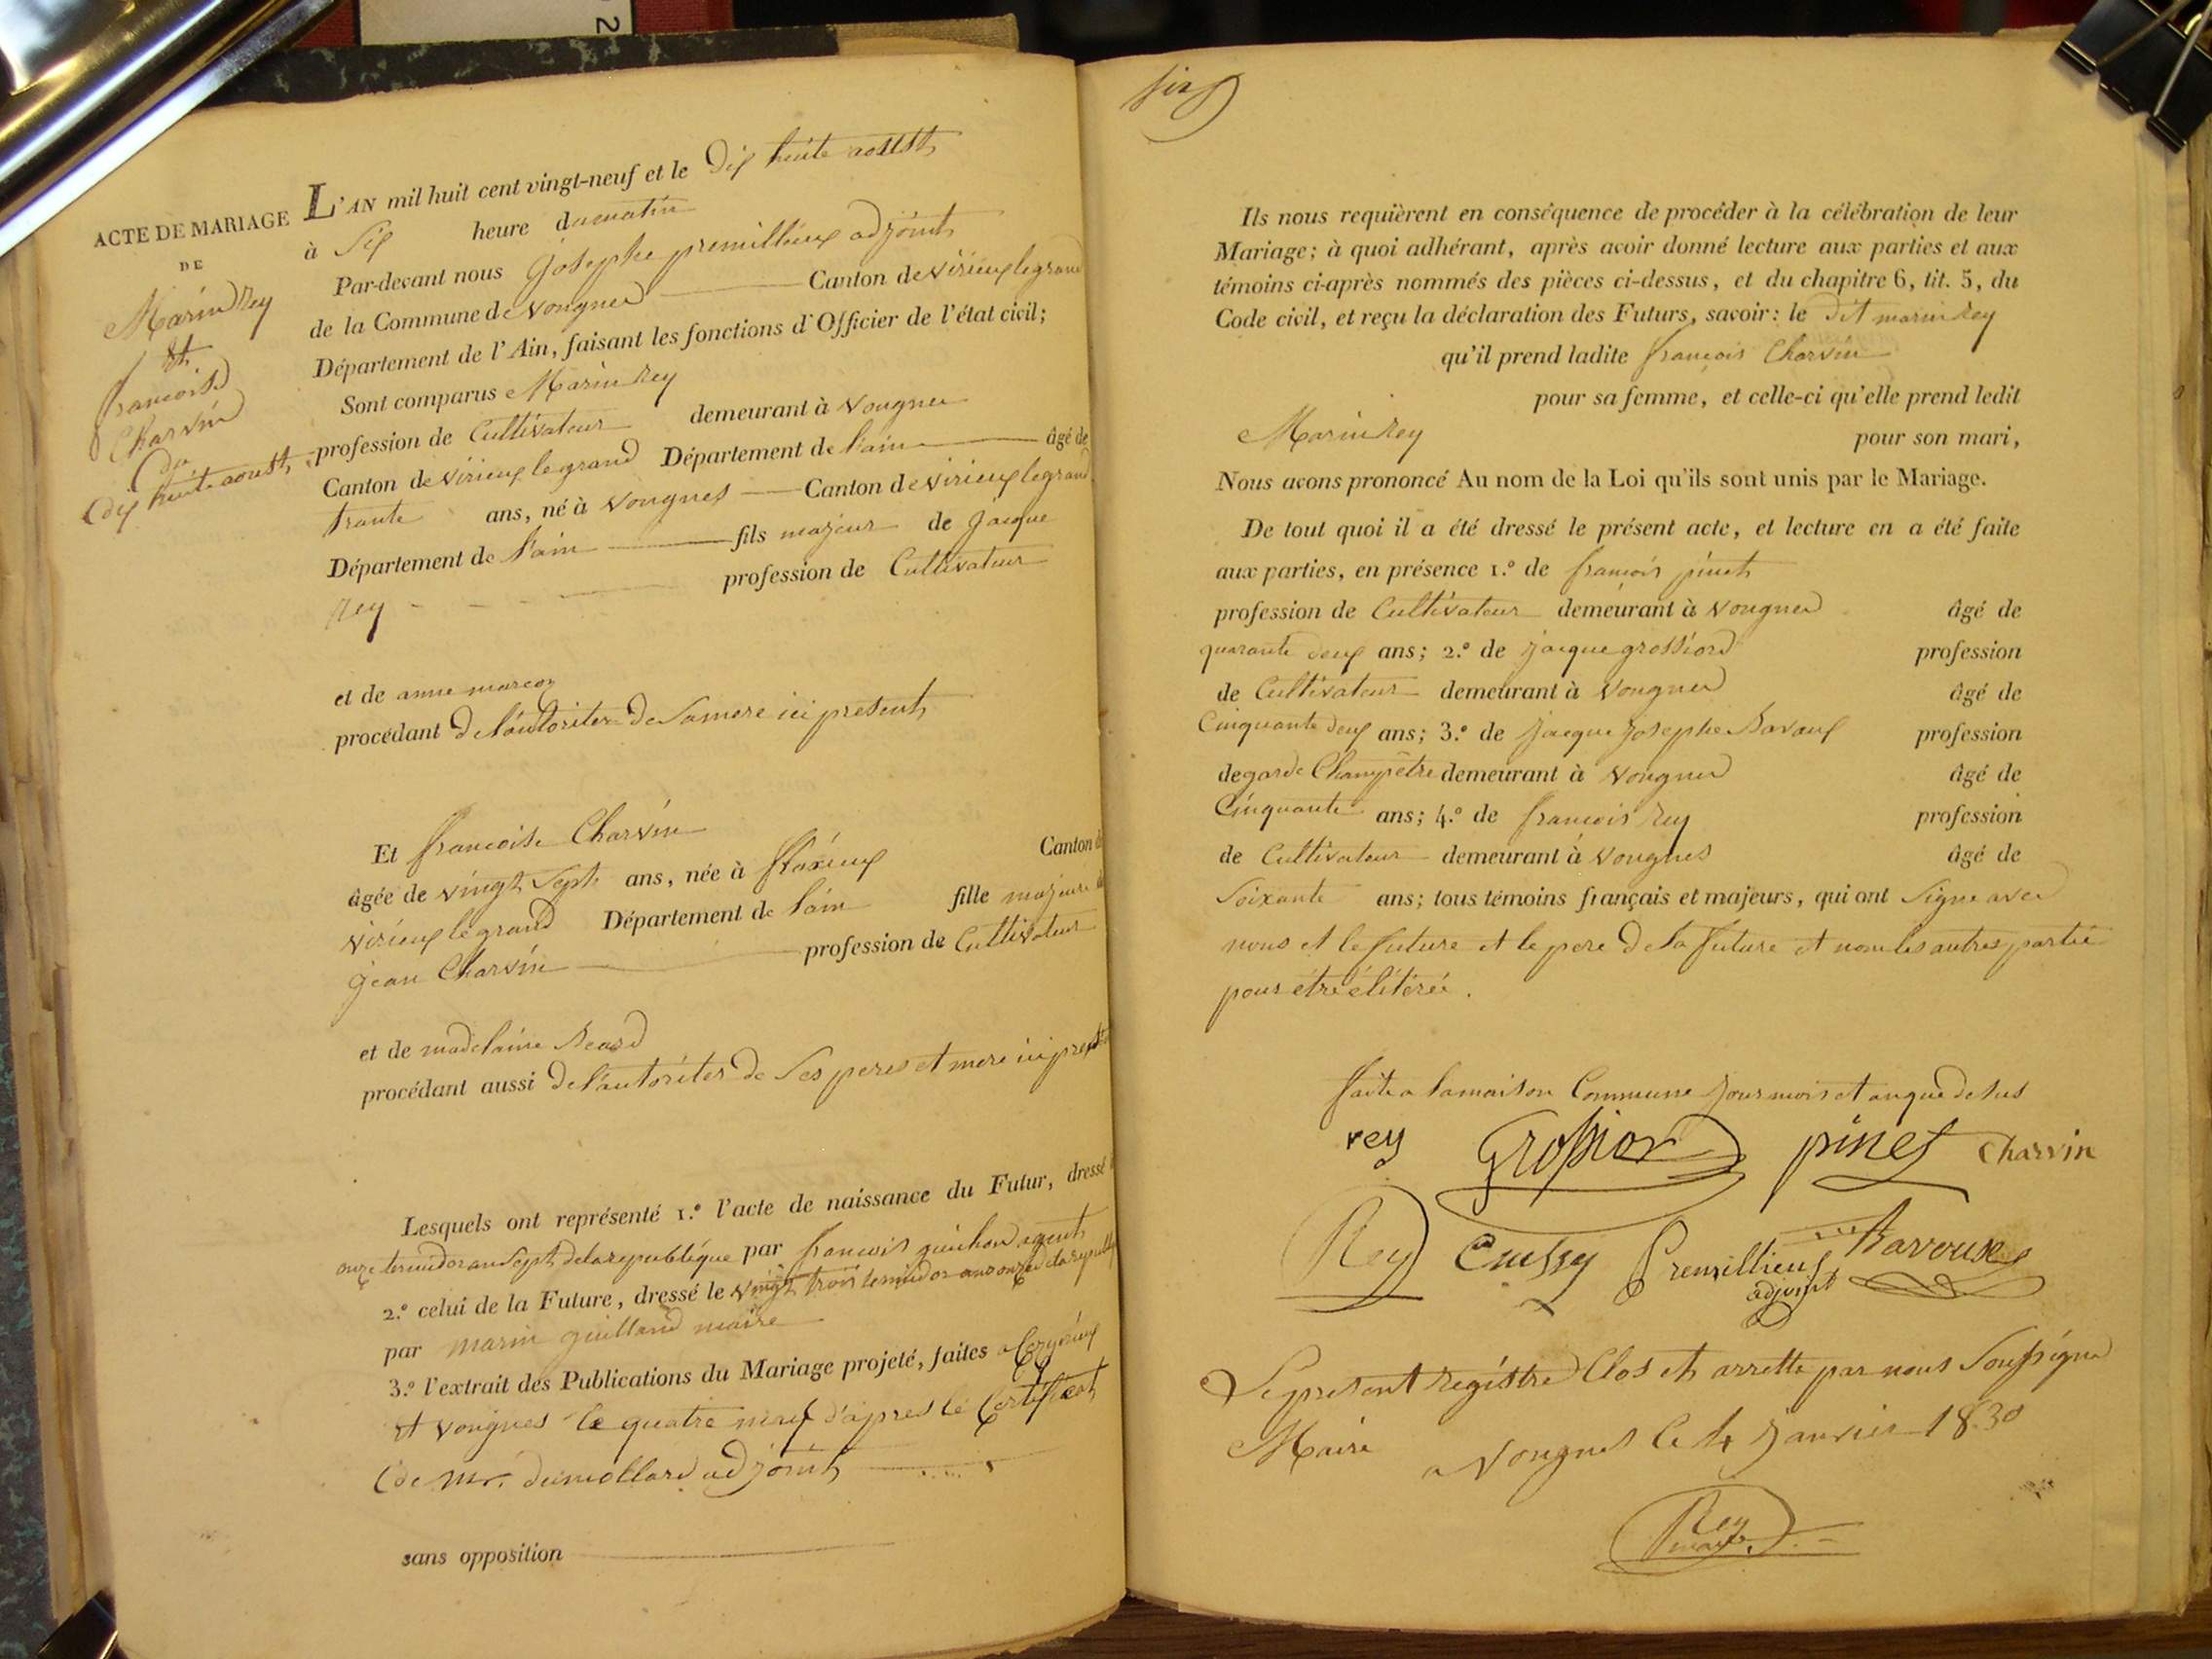 2
ACTE DE MARIAGE
DE
Marin Rey
et
francoise
Charvin
du
dix huite aoust
L'AN mil huit cent vingt-neuf et le Dix huite aoust
à Six heure du matin
Par-devant nous Josephe premillieux adjoint
de la Commune de Vongnes Canton de Virieux le grand
Département de l'Ain, faisant les fonctions d'Officier de l'état civil;
Sont comparus Marin Rey
profession de Cultivateur demeurant à Vongnes
Canton de Virieux le grand Département de l'ain âgé de
trante ans, né à Vongnes Canton de Virieux le grand
Département de l'ain fils majeur de Jacque
Rey profession de Cultivateur
et de anne
procédant de l'autoriter de Samere ici present
Et francoise Charvin
âgée de vingt Sept ans, née à flaxieux Canton de
Virieux le grand Département de l'ain fille majeure de
Jean Charvin profession de Cultivateur
et de madelaine
procédant aussi de l'autoriter de Ses peres et mere ici present
Lesquels ont représenté 1.º l'acte de naissance du Futur, dressé
onze termidor an Sept de la republique par francois guichon agent
2.º celui de la Future, dressé le vingt trois termidor ans onze de la republi
par marin guilland maire
3.º l'extrait des Publications du Mariage projeté, faites a Ceyzerieux
et vongnes le quatre d'apres le Certificat
de Mr. dumollard adjoint
sans opposition
six
Ils nous requièrent en conséquence de procéder à la célébration de leur
Mariage; à quoi adhérant, après avoir donné lecture aux parties et aux
témoins ci-après nommés des pièces ci-dessus, et du chapitre 6, tit. 5, du
Code civil, et reçu la déclaration des Futurs, savoir: le dit marin Rey
qu'il prend ladite francois Charvin
pour sa femme, et celle-ci qu'elle prend ledit
Marin Rey pour son mari,
Nous avons prononcé Au nom de la Loi qu'ils sont unis par le Mariage.
De tout quoi il a été dressé le présent acte, et lecture en a été faite
aux parties, en présence 1.º de francois pinet
profession de Cultivateur demeurant à Vongnes âgé de
quarante deux ans; 2.º de Jacque grossiord profession
de Cultivateur demeurant à Vongnes âgé de
Cinquante deux ans; 3.º de Jacque Josephe Ravaux profession
de garde Champêtre demeurant à Vongnes âgé de
Cinquante ans; 4.º de francois Rey profession
de Cultivateur demeurant à Vongnes âgé de
Soixante ans; tous témoins français et majeurs, qui ont Signe avec
nous et le future et le pere de la future et non les autres partie
pour etre élitérée.
faite a la maison Commune Jour mois et an que desus
rey Grossior pinet Charvin
Rey Cussy Premillieux adjoint Ravouse
Le present registre Clos et arrette par nous Soussigne
Maire a Vongnes le 4 Janvier 1830
Rey
maire